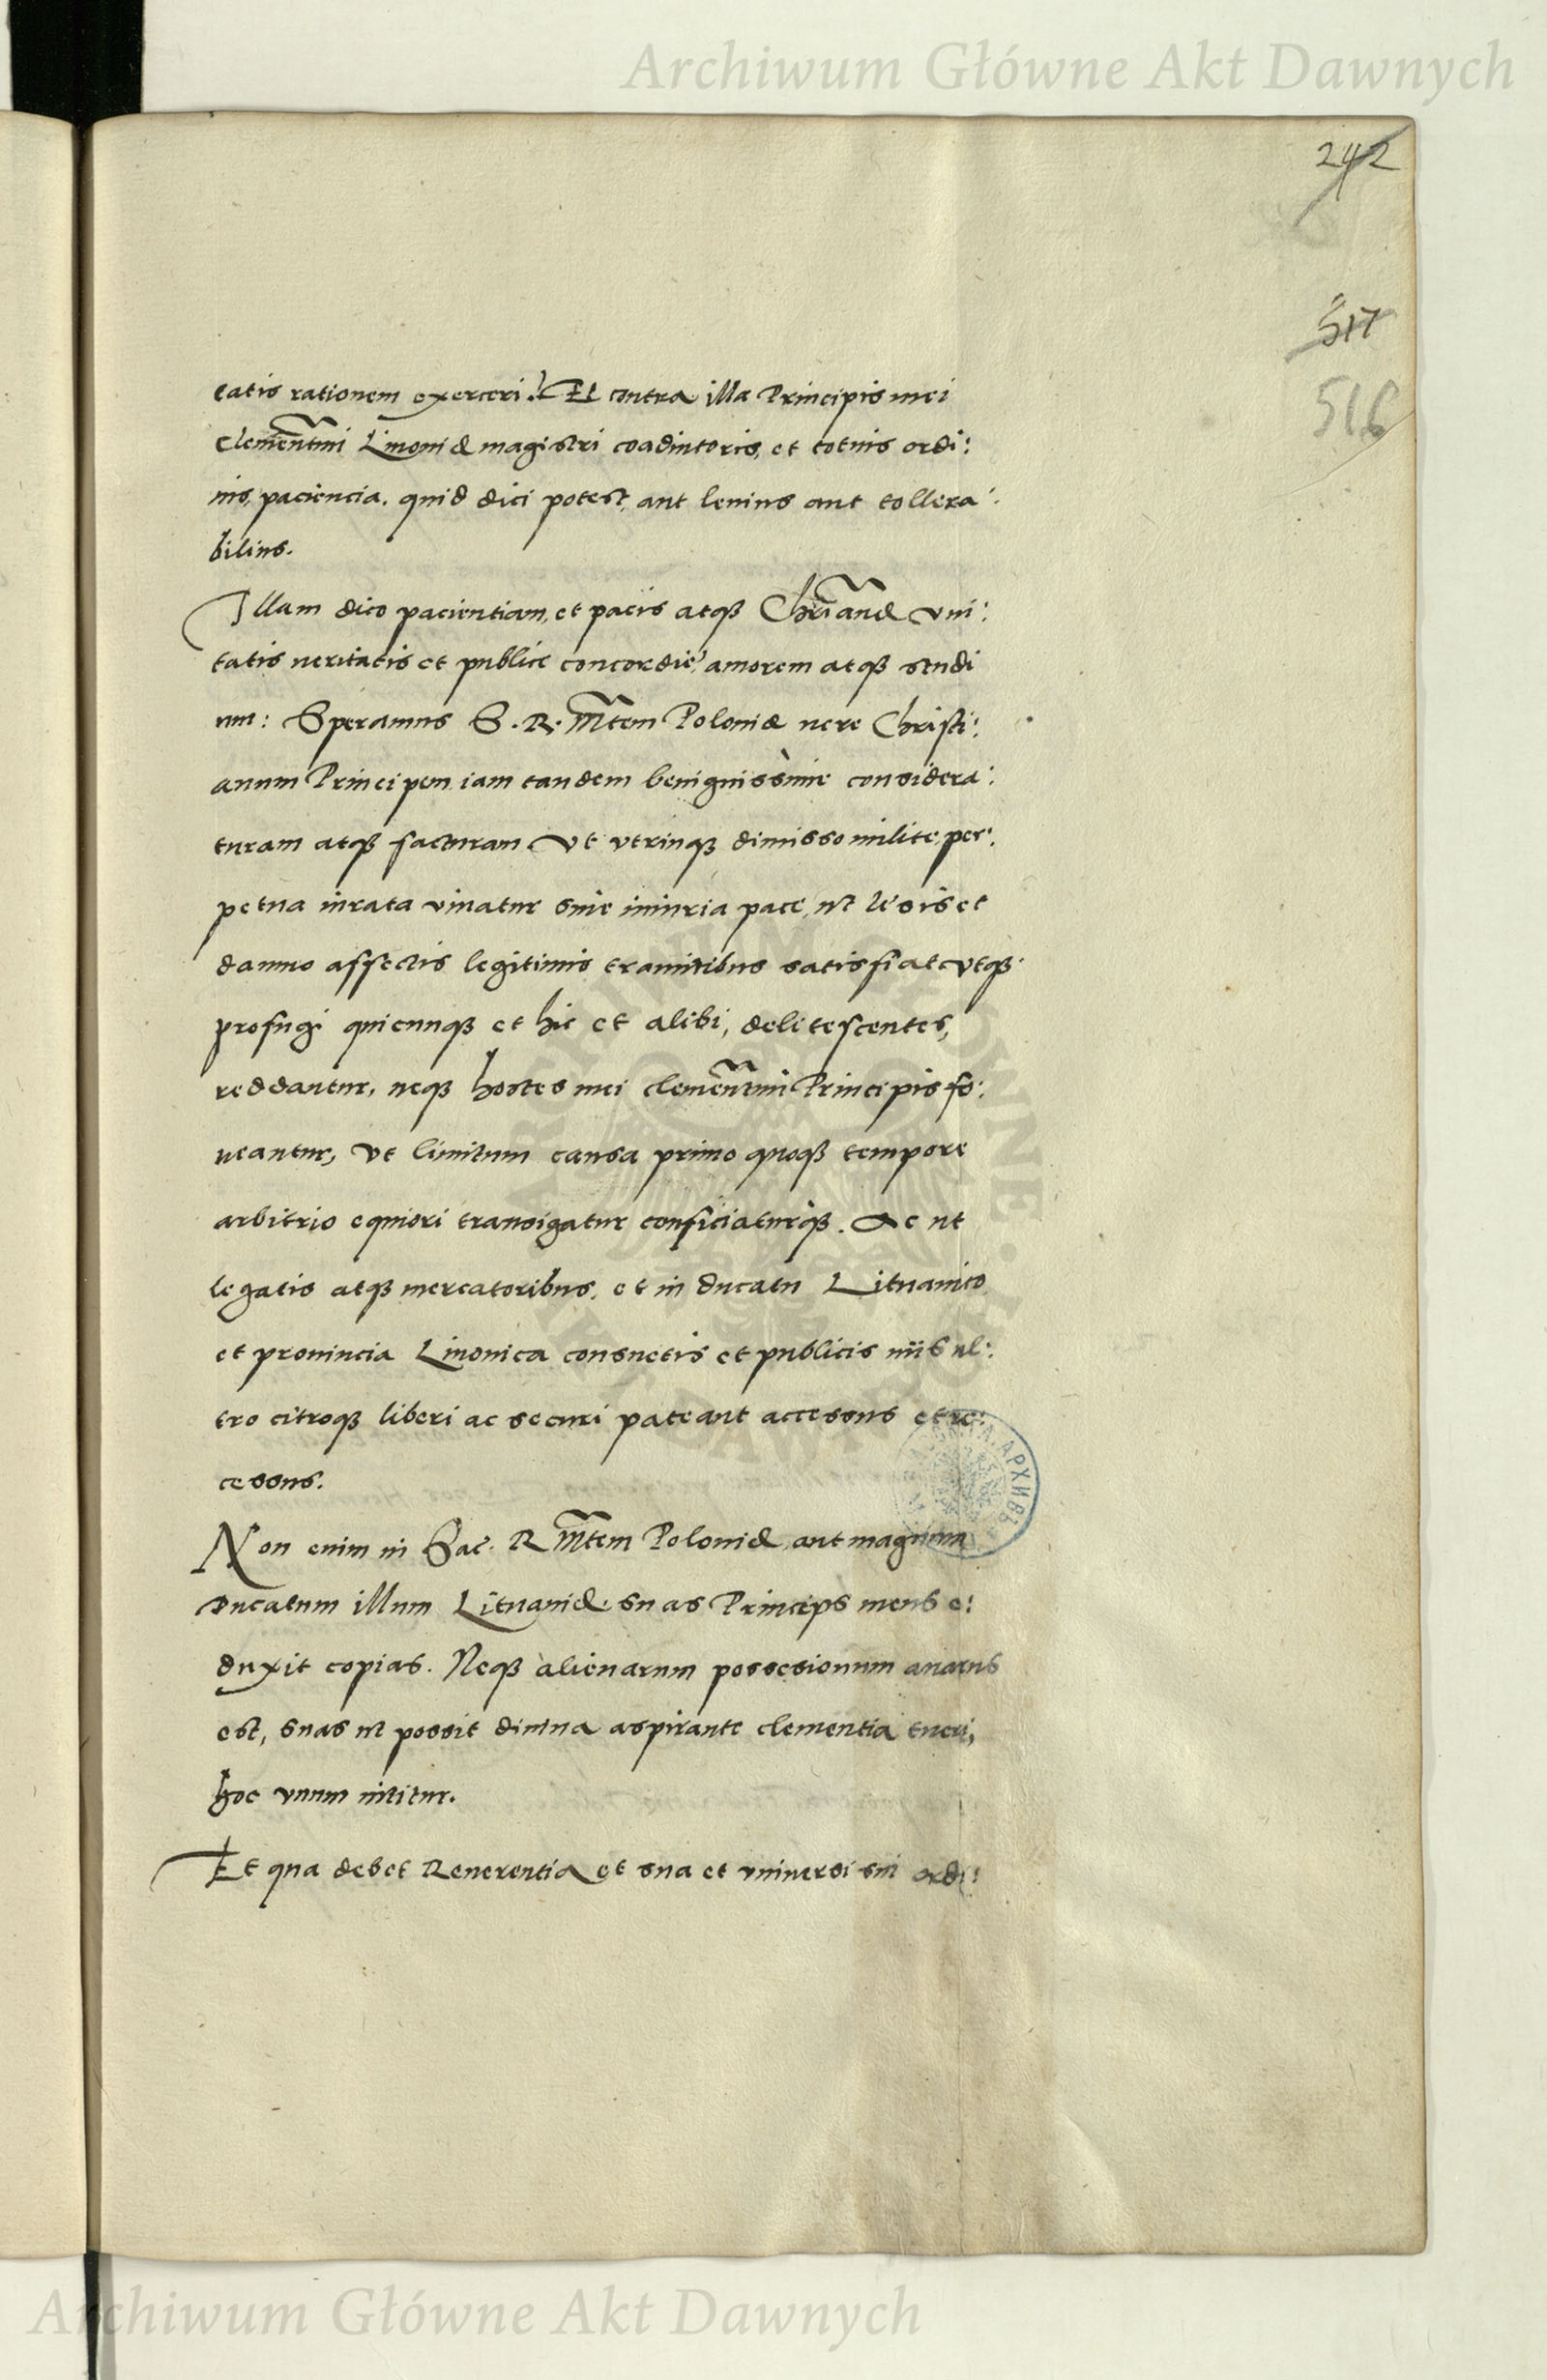 Archiwum Główne Akt Dawnych
242
517
516
tatis rationem exerceri! Et contra illa Principis mei
clementmi Liuoniae magistri coadiutoris, et totius ordi:
nis, paciencia. quid dici potest, aut lenius aut tollera:
bilius.
Illam dico pacientiam, et pacis atque Chrianae vni:
tatis ueritatis et publice concordie, amorem atque studi
um: Speramus S. R. Mtem Poloniae uere Christi:
anum Principem iam tandem benignissime considera:
turam atque facturam Vt vtrinque dimisso milite, per:
petua iurata viuatur sine iniuria pace, ut lesis et
damno affectis legitimis tramitibus satisfiat vtque
profugi quicunque et hic et alibi, delitescentes,
reddantur, neque hostes mei clementmi Principis fo:
ueantur, Vt limitum causa primo quoque tempore
arbitrio equiori transigatur conficiaturque. Ac ut
legatis atque mercatoribus, et in ducatu Lituanico
et prouincia Liuonica consuetis et publicis uiis ul:
tro citroque liberi ac securi pateant accessus et re:
cessus.
Non enim in Sac. R Mtem Poloniae aut magnum
Ducatum illum Lituaniae suas Princeps meus e:
duxit copias. Neque alienarum possesionum auarus
est, suas ut possit diuina aspirante clementia tueri,
hoc vnum nititur.
Et qua debet Reuerentia et sua et vniuersi sui ordi:
Archiwum Główne Akt Dawnych